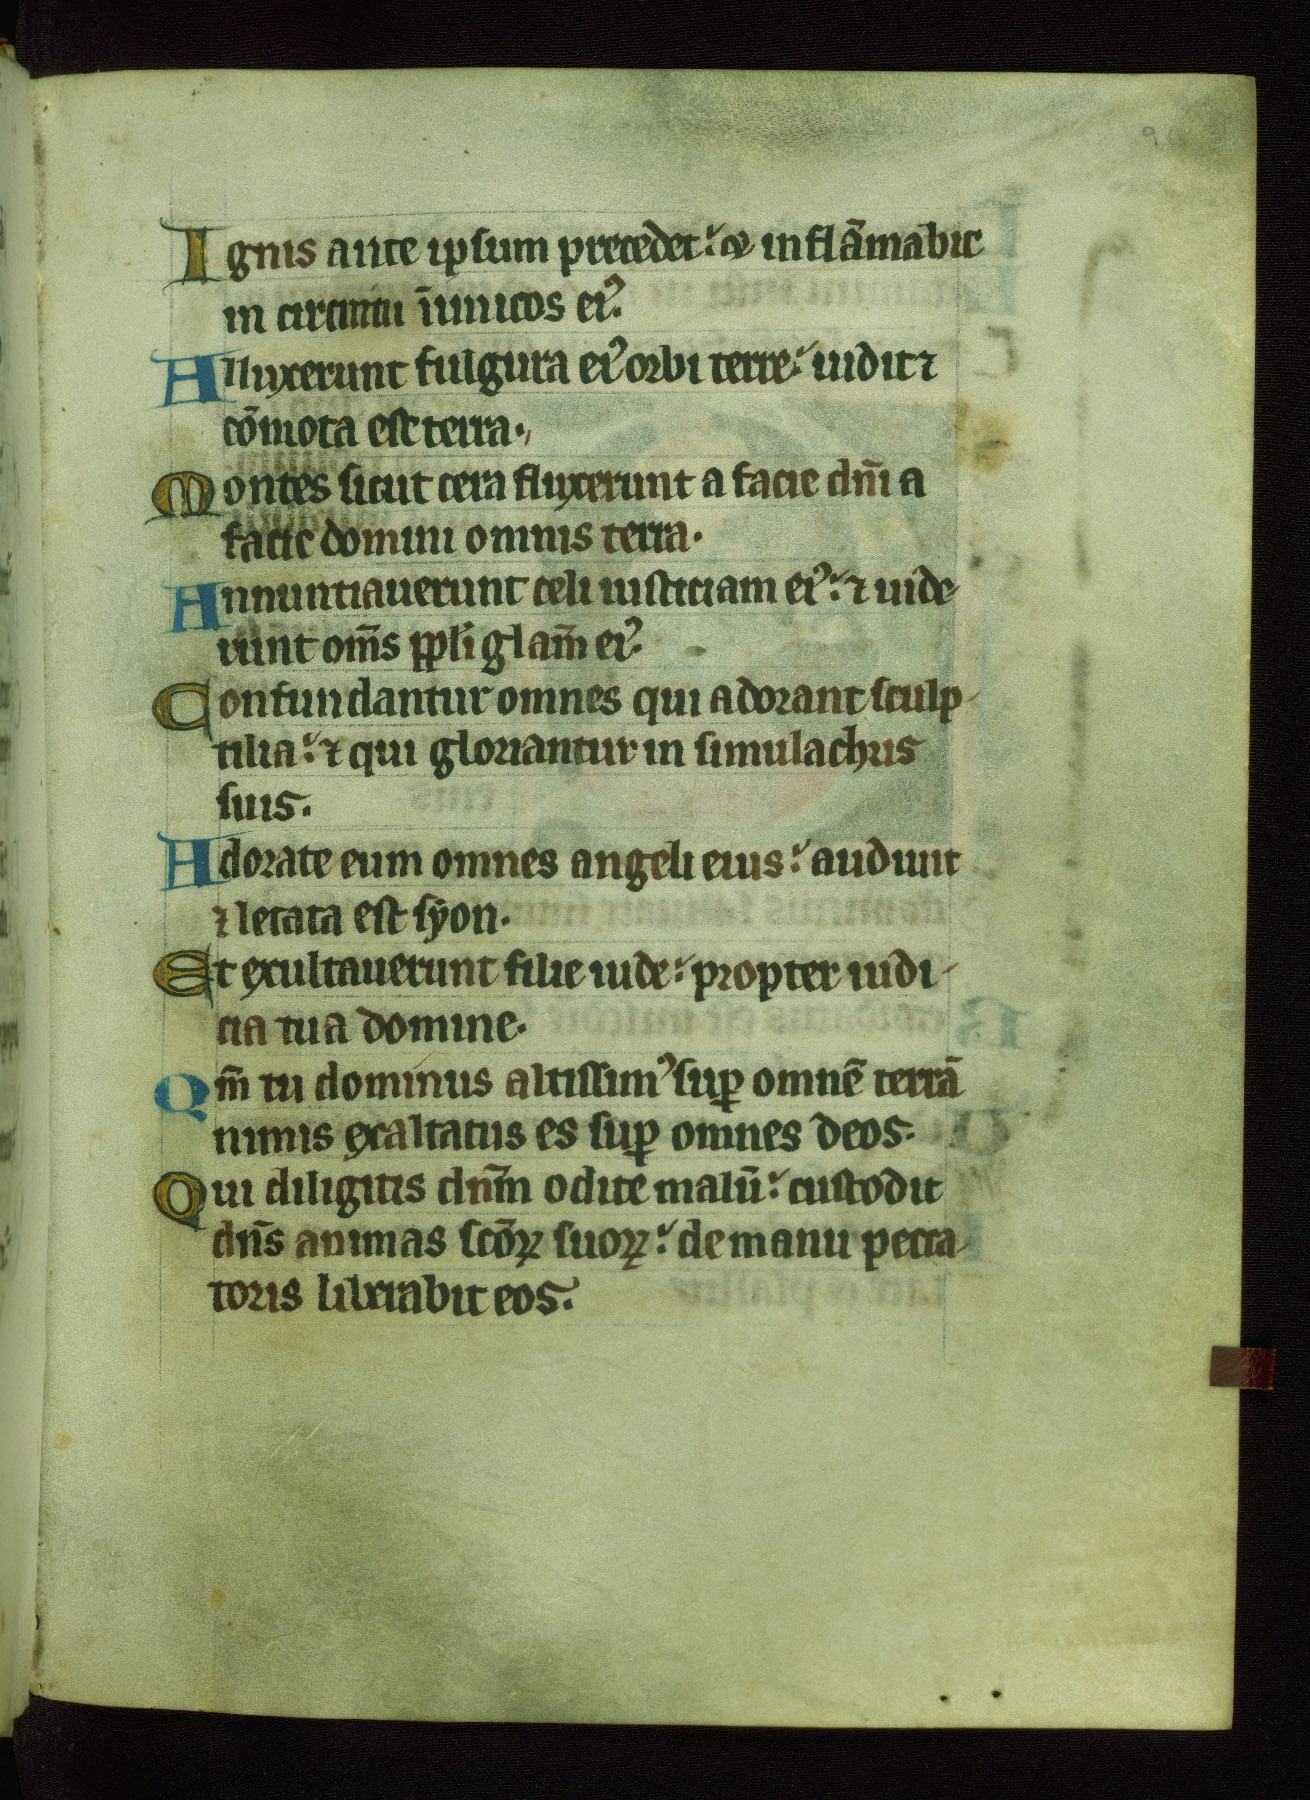 Ignis ante ipsum precedet: et inflāmabit
in circuitu īimicos eiꝰ.
Alluxerunt fulgura eiꝰ orbi terre: uidit ⁊
cōmota est terra.
Montes sicut cera fluxerunt a facie dn̄i a
facie domini omnis terra.
Annuntiauerunt celi iusticiam eiꝰ: ⁊ uide-
runt om̄s ppl̄i glam̄ eiꝰ.
Confundantur omnes qui adorant sculp-
tilia: ⁊ qui gloriantur in simulachris
suis.
Adorate eum omnes angeli eius: audiuit
⁊ letata est syon.
Et exultauerunt filie iude: propter iudi-
cia tua domine.
Qm̄ tu dominus altissimꝰ suꝑ omnē terrā
nimis exaltatus es suꝑ omnes deos.
Qui diligitis dn̄m odite malū: custodit
dn̄s animas scōꝝ suoꝝ: de manu pecca-
toris liberabit eos.